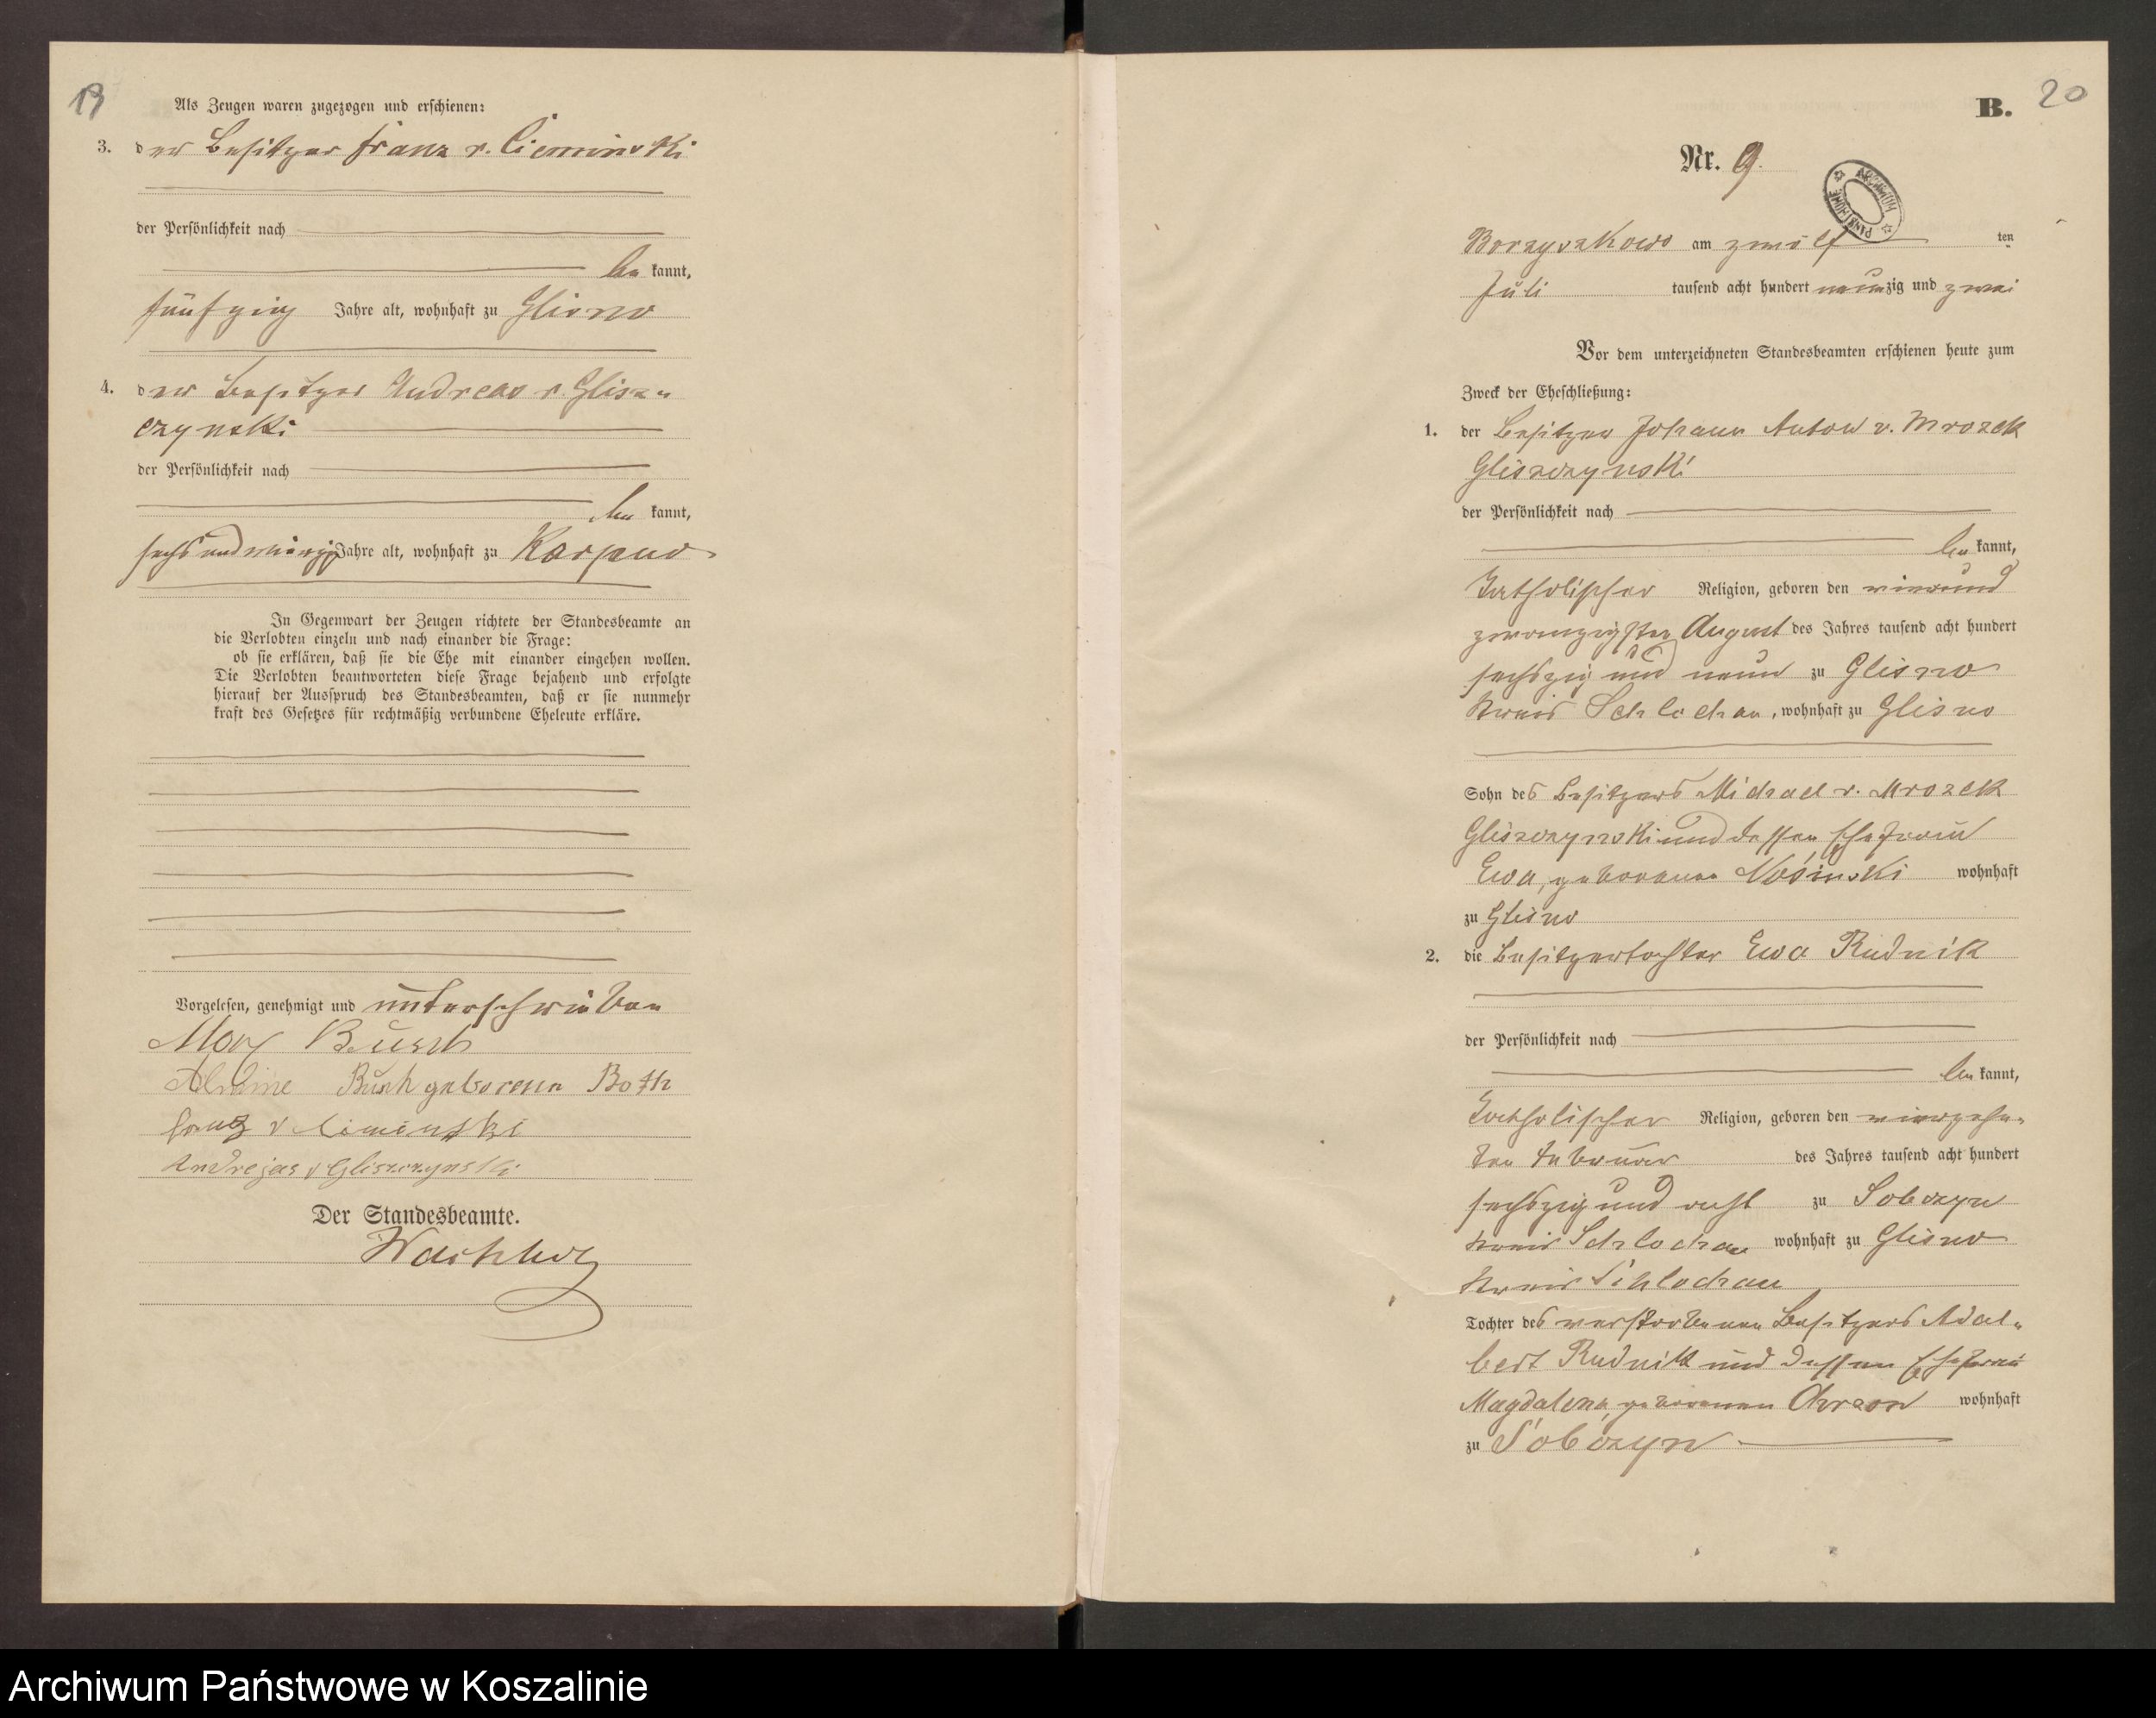 19
Als Zeugen waren zugezogen und erschienen:
3. der Besitzer Franz v. Cieminski
der Persönlichkeit nach
be kannt,
fünfzig Jahre alt, wohnhaft zu Glisno
4. der Besitzer Andreas v. Glisz-
czynski
der Persönlichkeit nach
be kannt,
sechsundvierzig Jahre alt, wohnhaft zu Karpno
In Gegenwart der Zeugen richtete der Standesbeamte an
die Verlobten einzeln und nach einander die Frage:
ob sie erklären, daß sie die Ehe mit einander eingehen wollen.
Die Verlobten beantworteten diese Frage bejahend und erfolgte
hierauf der Ausspruch des Standesbeamten, daß er sie nunmehr
kraft des Gesetzes für rechtmäßig verbundene Eheleute erkläre.
Vorgelesen, genehmigt und unterschrieben
Max Busch
Busch geborene Both
Franz v Cieminski
Andrejas v Gliszczynski
Der Standesbeamte.
20
B.
Nr. 9.
ARCHIWUM PAŃSTWOWE
Borzyszkowo am zwölf ten
Juli tausend acht hundert neunzig und zwei
Vor dem unterzeichneten Standesbeamten erschienen heute zum
Zweck der Eheschließung:
1. der Besitzer Johann Anton v. Mrozek
Gliszczynski
der Persönlichkeit nach
be kannt,
katholischer Religion, geboren den vierund
zwanzigsten August des Jahres tausend acht hundert
sechszig und neun zu Glisno
Kreis Schlochau, wohnhaft zu Glisno
Sohn des Besitzers Michael v. Mrozek
Gliszczynski und dessen Ehefrau
Ewa, geborenen Nosinski wohnhaft
zu Glisno
2. die Besitzertochter Ewa Rudnik
der Persönlichkeit nach
be kannt,
katholischer Religion, geboren den vierzehn-
ten Februar des Jahres tausend acht hundert
sechszig und acht zu Sobczyn
Kreis Schlochau wohnhaft zu Glisno
Kreis Schlochau
Tochter des verstorbenen Besitzers Adal-
bert Rudnik und dessen Ehefrau
Magdalena, geborenen wohnhaft
zu Sobczyn
Archiwum Państwowe w Koszalinie